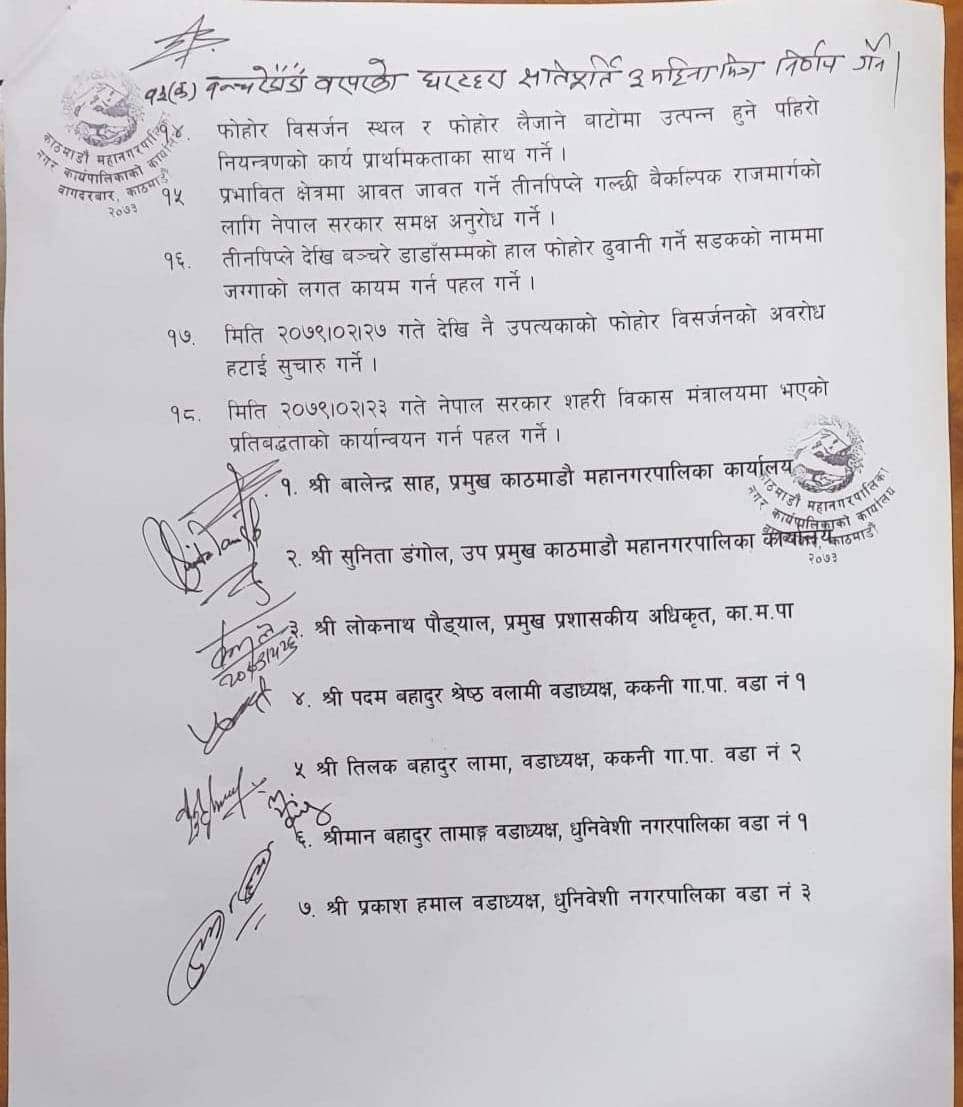 १३(क) बन्चरेडाँडा वरपरको घरटहरा क्षतिपूर्ति ३ महिना भित्र निर्णय गर्ने ।
काठमाडौं महानगरपालिका
नगर कार्यपालिकाको कार्यालय
बागदरबार, काठमाडौं
२०७३
१४. फोहोर विसर्जन स्थल र फोहोर लैजाने वाटोमा उत्पन्न हुने पहिरो
नियन्त्रणको कार्य प्राथमिकताका साथ गर्ने ।
१५ प्रभावित क्षेत्रमा आवत जावत गर्ने तीनपिप्ले गल्छी बैकल्पिक राजमार्गको
लागि नेपाल सरकार समक्ष अनुरोध गर्ने ।
१६. तीनपिप्ले देखि बञ्चरे डाडाँसम्मको हाल फोहोर ढुवानी गर्ने सडकको नाममा
जग्गाको लगत कायम गर्न पहल गर्ने ।
१७. मिति २०७९।०२।२७ गते देखि नै उपत्यकाको फोहोर विसर्जनको अवरोध
हटाई सुचारु गर्ने ।
१८. मिति २०७९।०२।२३ गते नेपाल सरकार शहरी विकास मंत्रालयमा भएको
प्रतिबद्धताको कार्यान्वयन गर्न पहल गर्ने ।
१. श्री बालेन्द्र साह, प्रमुख काठमाडौ महानगरपालिका कार्यालय
काठमाडौं महानगरपालिका
नगर कार्यपालिकाको कार्यालय
काठमाडौं
२०७३
२. श्री सुनिता डंगोल, उप प्रमुख काठमाडौ महानगरपालिका कार्यालय
३. श्री लोकनाथ पौड्याल, प्रमुख प्रशासकीय अधिकृत, का.म.पा
४. श्री पदम बहादुर श्रेष्ठ वलामी वडाध्यक्ष, ककनी गा.पा. वडा नं १
५ श्री तिलक बहादुर लामा, वडाध्यक्ष, ककनी गा.पा. वडा नं २
६. श्रीमान बहादुर तामाङ्ग वडाध्यक्ष, धुनिवेशी नगरपालिका वडा नं १
७. श्री प्रकाश हमाल वडाध्यक्ष, धुनिवेशी नगरपालिका वडा नं ३